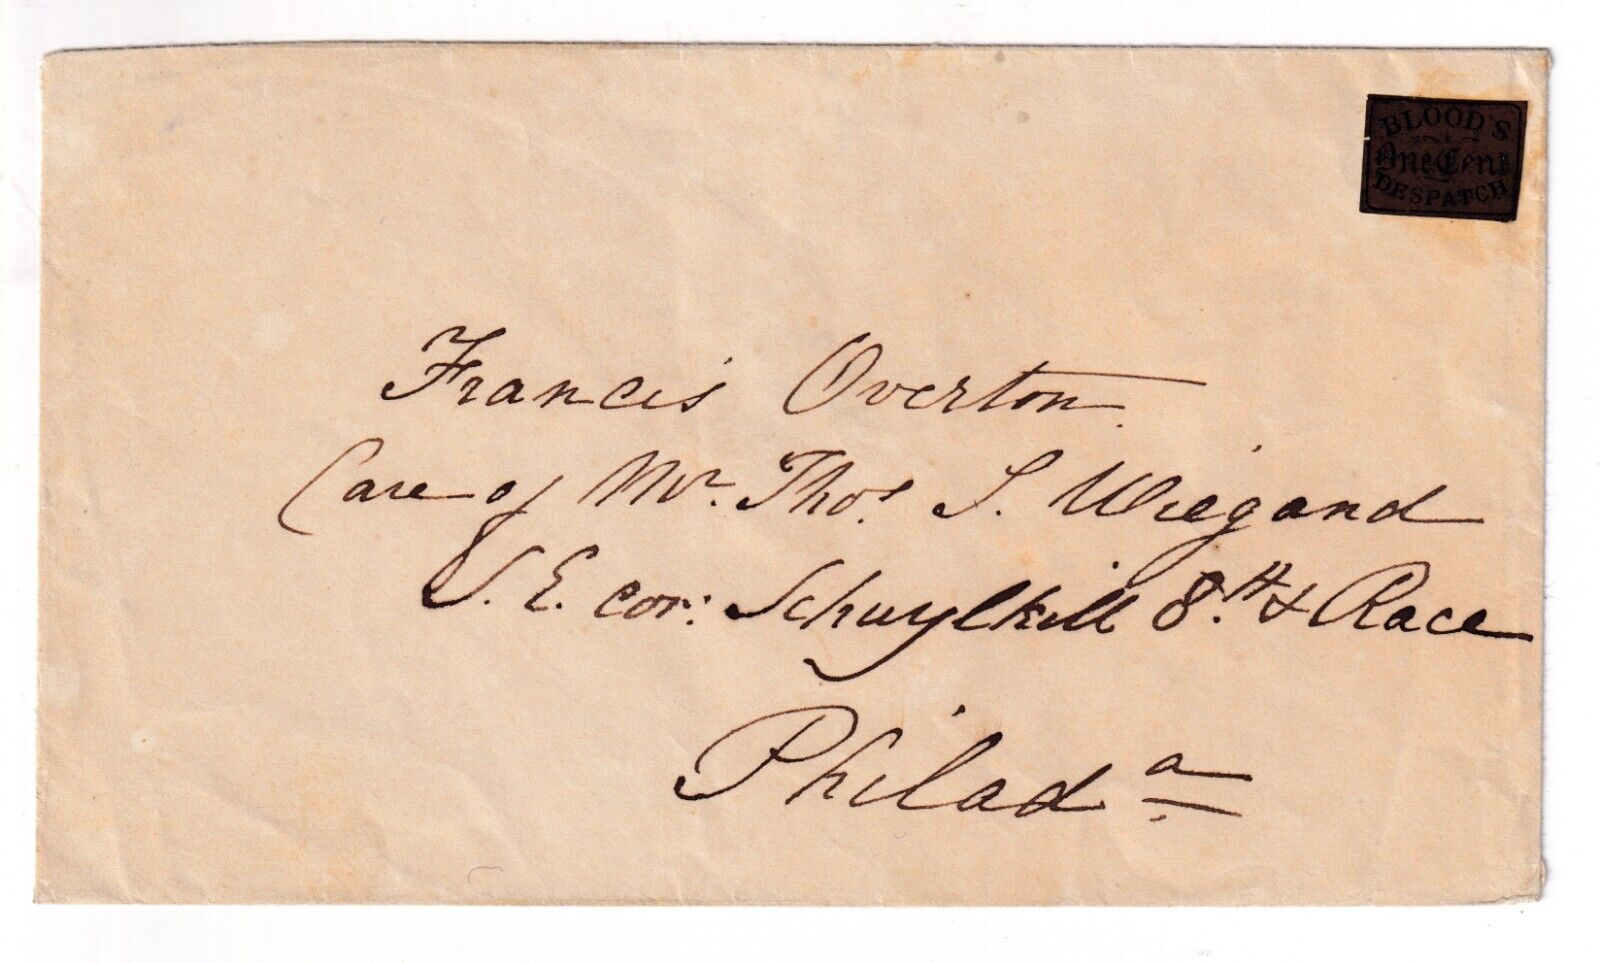 BLOOD'S
One Cent
DESPATCH
Francis Overton
Care of Mr. Thos. S. Wiegand
S. E. cor: Schuylkill 8.th & Race
Philada